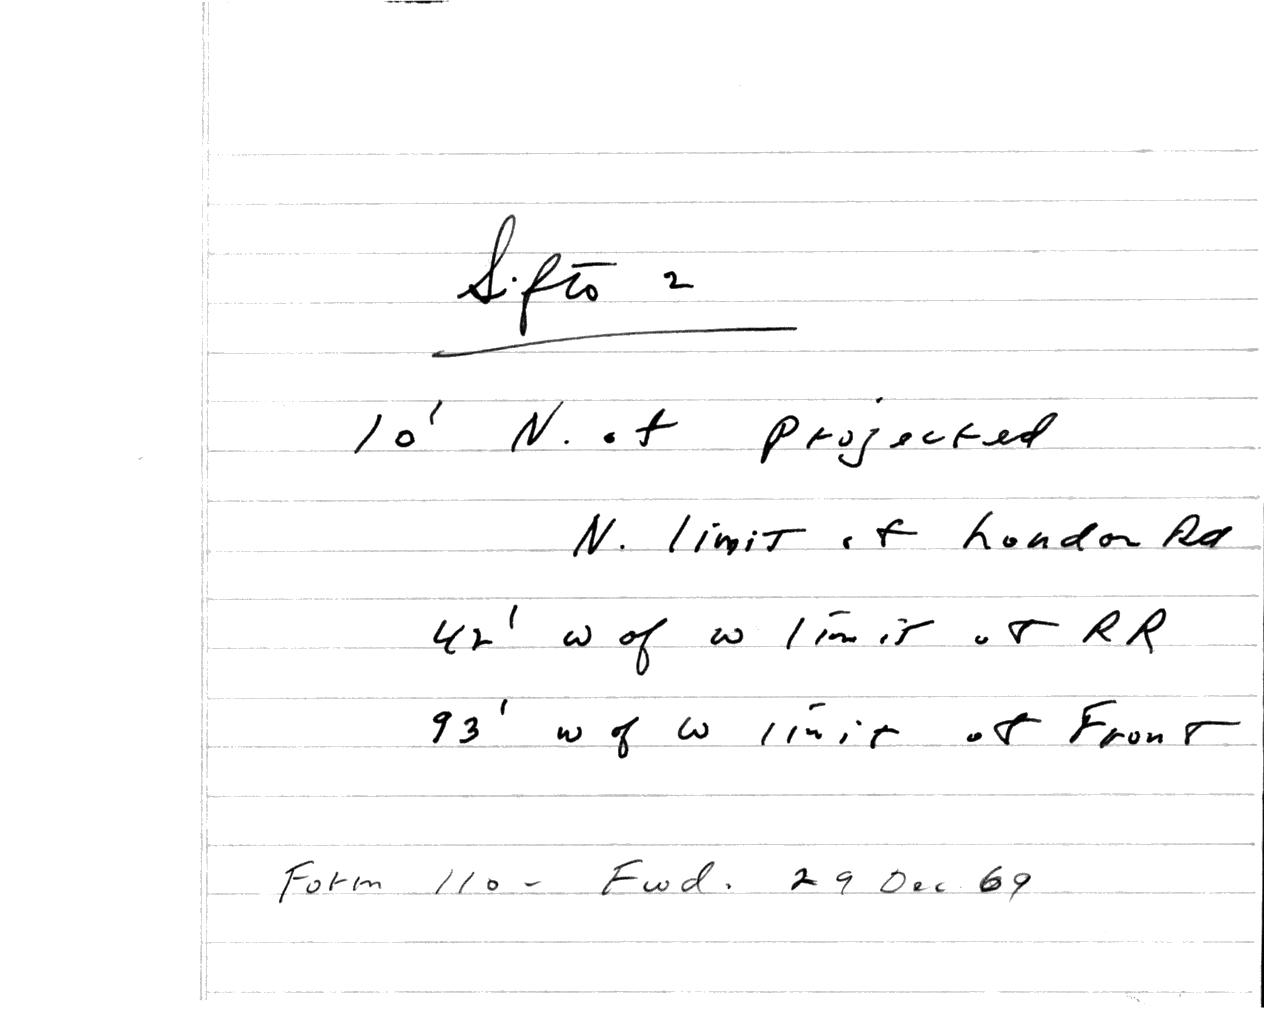 Sifto 2
10' N. of projected
N. limit of London Rd
42' W of W limit of RR
93' W of W limit of Front
Form 110 - Fwd. 29 Dec 69